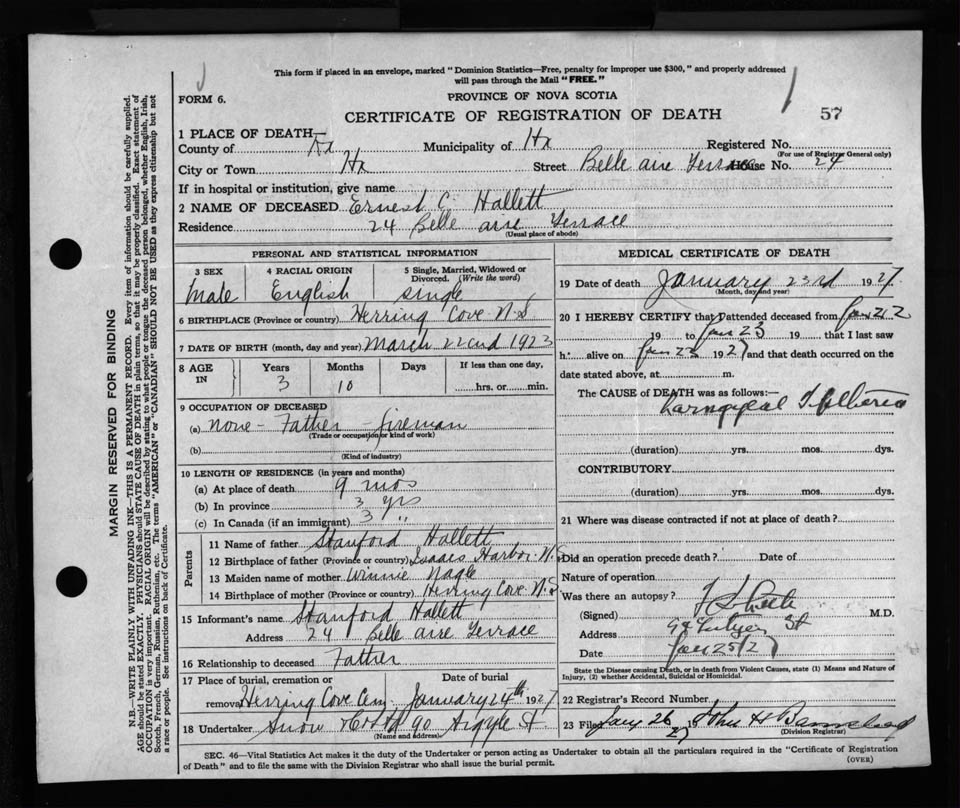 This form if placed in an envelope, marked "Dominion Statistics—Free, penalty for improper use $300," and properly addressed
will pass through the Mail "FREE."
FORM 6.
PROVINCE OF NOVA SCOTIA
CERTIFICATE OF REGISTRATION OF DEATH
57
1 PLACE OF DEATH
County of Hx Municipality of Hx Registered No.
(For use of Registrar General only)
City or Town Hx Street Belle aire Terrace House No. 24
If in hospital or institution, give name
2 NAME OF DECEASED Ernest C. Hallett
Residence 24 Belle aire Terrace
(Usual place of abode)
PERSONAL AND STATISTICAL INFORMATION
3 SEX 4 RACIAL ORIGIN 5 Single, Married, Widowed or
Divorced. (Write the word)
Male English single
6 BIRTHPLACE (Province or country) Herring Cove N.S
7 DATE OF BIRTH (month, day and year) March 22nd 1923
8 AGE IN Years Months Days If less than one day,
3 10 hrs. or min.
9 OCCUPATION OF DECEASED
(a) none - Father - fireman
(Trade or occupation or kind of work)
(b)
(Kind of industry)
10 LENGTH OF RESIDENCE (in years and months)
(a) At place of death 9 mos
(b) In province 3 yrs
(c) In Canada (if an immigrant) 3 "
Parents
11 Name of father Stanford Hallett
12 Birthplace of father (Province or country) Isaacs Harbor N.S
13 Maiden name of mother Winnie Nagle
14 Birthplace of mother (Province or country) Herring Cove N.S
15 Informant's name Stanford Hallett
Address 24 Belle aire Terrace
16 Relationship to deceased Father
17 Place of burial, cremation or Date of burial
removal Herring Cove Cem January 24th 1927
18 Undertaker Snow & Co Ltd 90 Argyle St
(Name and address)
MEDICAL CERTIFICATE OF DEATH
19 Date of death January 23rd 1927
(Month, day and year)
20 I HEREBY CERTIFY that I attended deceased from Jan 21/2
19 to Jan 23 19 that I last saw
h alive on Jan 23 1927 and that death occurred on the
date stated above, at m.
The CAUSE of DEATH was as follows:—
Laryngeal Diphtheria
(duration) yrs. mos. dys.
CONTRIBUTORY
(duration) yrs. mos. dys.
21 Where was disease contracted if not at place of death?
Did an operation precede death? Date of
Nature of operation
Was there an autopsy?
(Signed) M.D.
Address St
Date Jan 25/27
State the Disease causing Death, or in death from Violent Causes, state (1) Means and Nature of
Injury, (2) whether Accidental, Suicidal or Homicidal.
22 Registrar's Record Number
23 Filed Jany 26 27
(Division Registrar)
SEC. 46—Vital Statistics Act makes it the duty of the Undertaker or person acting as Undertaker to obtain all the particulars required in the "Certificate of Registration
of Death" and to file the same with the Division Registrar who shall issue the burial permit.
(OVER)
MARGIN RESERVED FOR BINDING
N.B.—WRITE PLAINLY WITH UNFADING INK—THIS IS A PERMANENT RECORD. Every item of information should be carefully supplied.
AGE should be stated EXACTLY. PHYSICIANS should STATE CAUSE OF DEATH in plain terms, so that it may be properly classified. Exact statement of
OCCUPATION is very important. RACIAL ORIGIN will be described by stating to what people or tongue the deceased person belonged, whether English, Irish,
Scotch, French, German, Russian, Ruthenian, etc. The terms "AMERICAN" or "CANADIAN" SHOULD NOT BE USED as they express citizenship but not
a race or people. See instructions on back of Certificate.